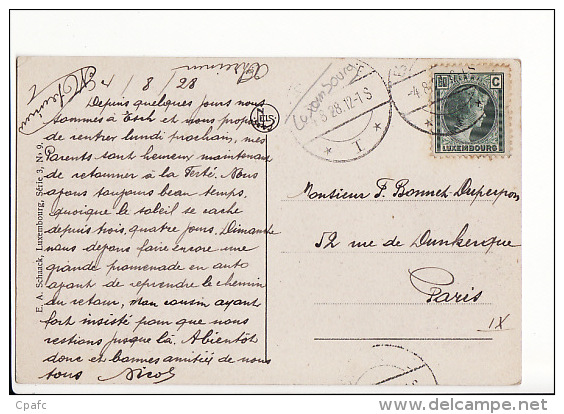 4/8/28
Depuis quelques jours nous
sommes à Esch et nous propos
de rentrer lundi prochain, mes
Parents sont heureux maintenant
de retourner à la Ferté. Nous
avons toujours beau temps,
quoique le soleil se cache
depuis trois, quatre jours. Dimanche
nous devons faire encore une
grande promenade en auto
avant de reprendre le chemin
du retour, mon cousin ayant
fort insisté pour que nous
restions jusque là. A bientôt
donc et bonnes amitiés de nous
tous Nicol
E. A. Schaack, Luxembourg, Série 3, No 9.
Luxembourg
4.8.28.12-1S
* T *
4.8.
C
LUXEMBOURG
Monsieur F. Bonnet-Duperron
52 rue de Dunkerque
Paris
IX
Cpafc
delcampe.net